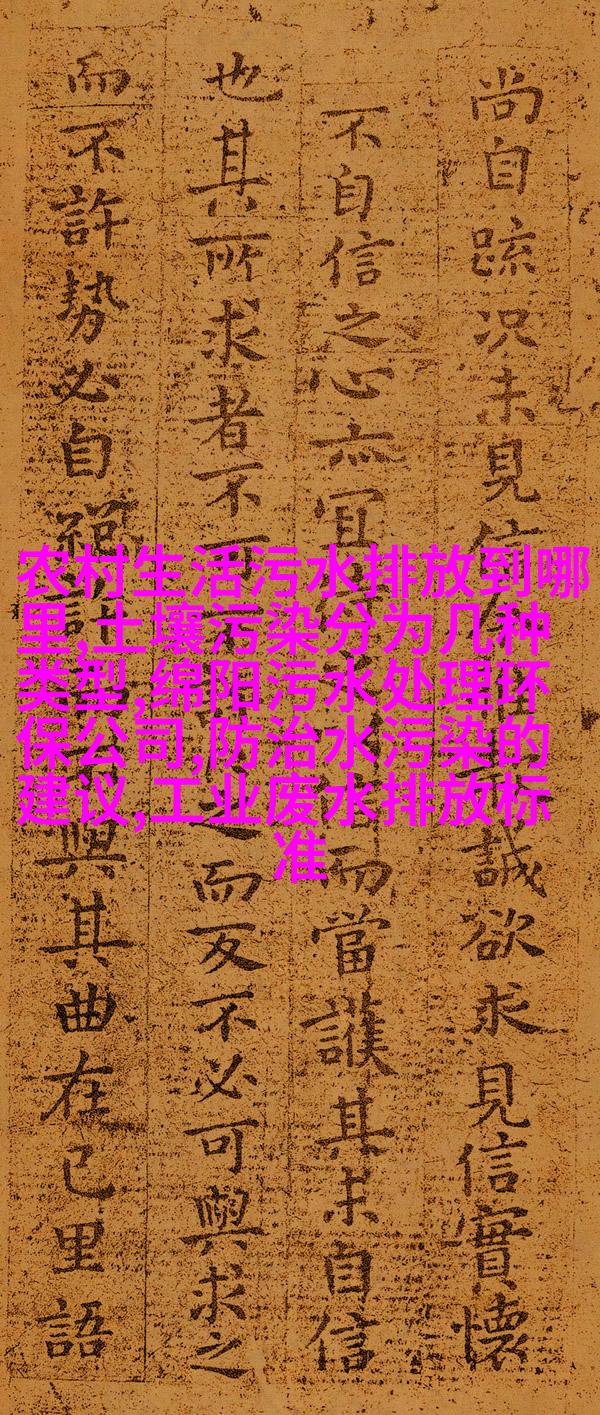 尚自踈况未見信誠欲求見信實懷
不自信之心亦宜而當護其未自信
也其所求者不可之而反不必可與求之
而不許勢必自絕許與其曲在己里語
农村生活污水排放到哪
里,土壤污染分为几种
类型,绵阳污水处理环
保公司,防治水污染的
建议,工业废水排放标
准